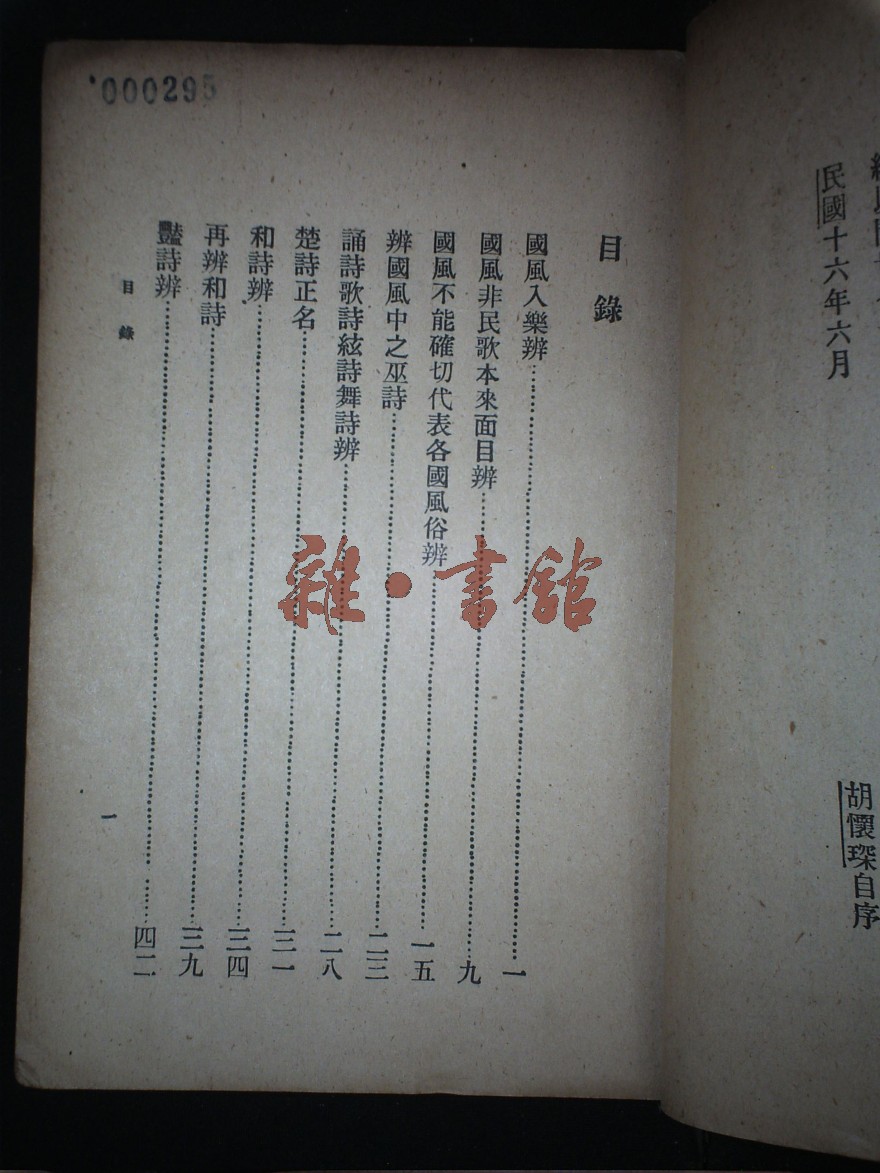 民國十六年六月
胡懷琛自序
000295
目錄
國風入樂辨……一
國風非民歌本來面目辨……九
國風不能確切代表各國風俗辨……一五
辨國風中之巫詩……二三
誦詩歌詩絃詩舞詩辨……二八
楚詩正名……三一
和詩辨……三四
再辨和詩……三九
豔詩辨……四二
目錄
一
雜·書館